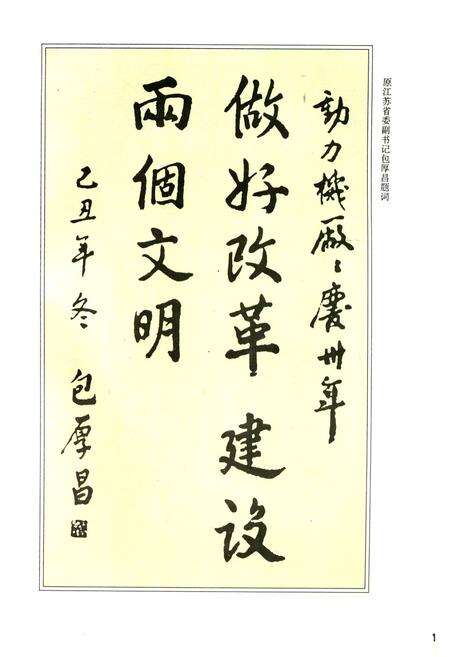 原江苏省委副书记包厚昌题词
動力機厰〻慶卅年
做好改革建设
兩個文明
乙丑年冬 包厚昌
1